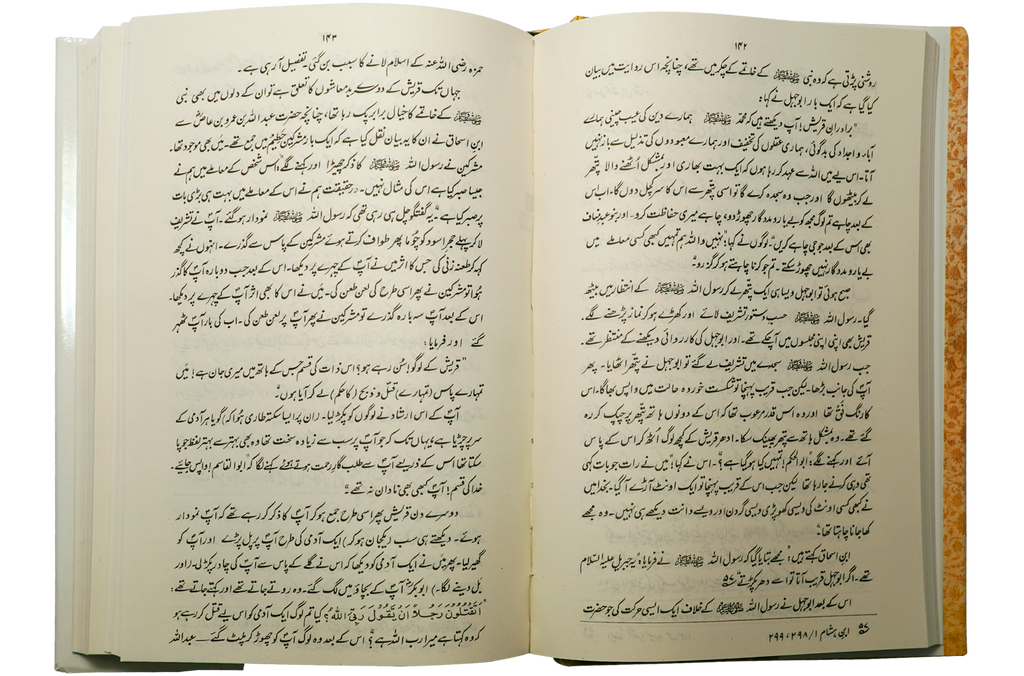 ۱۴۲
روشنی پڑتی ہے کہ وہ نبی ﷺ کے خاتمے کے چکر میں تھے، چنانچہ اس روایت میں بیان
کیا گیا ہے کہ ایک بار ابوجہل نے کہا:
"برادرانِ قریش! آپ دیکھتے ہیں کہ محمّد ﷺ ہمارے دین کی عیب چینی ہمارے
آباء و اجداد کی بدگوئی، ہماری عقلوں کی تخفیف اور ہمارے معبودوں کی تذلیل سے باز نہیں
آتا۔ اس لیے میں اللہ سے عہد کر رہا ہوں کہ ایک بہت بھاری اور بمشکل اُٹھنے والا پتھر
لے کر بیٹھوں گا اور جب وہ سجدہ کرے گا تو اسی پتھر سے اس کا سر کچل دوں گا۔ اب اس
کے بعد چاہے تم لوگ مجھ کو بے یار و مددگار چھوڑ دو، چاہے میری حفاظت کرو۔ اور بنو عبد مناف
بھی اس کے بعد جو جی چاہے کریں"۔ لوگوں نے کہا: "نہیں واللہ ہم تمہیں کبھی کسی معاملے میں
بے یار و مددگار نہیں چھوڑ سکتے۔ تم جو کرنا چاہتے ہو کر گزرو"۔
صبح ہوئی تو ابوجہل ویسا ہی ایک پتھر لے کر رسول اللہ ﷺ کے انتظار میں بیٹھ
گیا۔ رسول اللہ ﷺ حسبِ دستور تشریف لائے اور کھڑے ہو کر نماز پڑھنے لگے۔
قریش بھی اپنی اپنی مجلسوں میں آ چکے تھے۔ اور ابوجہل کی کارروائی دیکھنے کے منتظر تھے۔
جب رسول اللہ ﷺ سجدے میں تشریف لے گئے تو ابوجہل نے پتھر اٹھایا۔ پھر
آپؐ کی جانب بڑھا۔ لیکن جب قریب پہنچا تو شکست خوردہ حالت میں واپس بھاگا۔ اس
کا رنگ فق تھا اور وہ اس قدر مرعوب تھا کہ اس کے دونوں ہاتھ پتھر پر چپک کر رہ
گئے تھے۔ وہ بمشکل ہاتھ سے پتھر پھینک سکا۔ ادھر قریش کے کچھ لوگ اُٹھ کر اس کے پاس
آئے اور کہنے لگے: "ابوالحکم! تمہیں کیا ہو گیا ہے؟"۔ اس نے کہا: "میں نے رات جو بات کہی
تھی وہی کرنے جا رہا تھا لیکن جب اس کے قریب پہنچا تو ایک اونٹ آڑے آ گیا۔ بخدا میں
نے کبھی کسی اونٹ کی ویسی کھوپڑی ویسی گردن اور ویسے دانت دیکھے ہی نہیں۔ وہ مجھے
کھا جانا چاہتا تھا"۔
ابن اسحاق کہتے ہیں: "مجھے بتایا گیا کہ رسول اللہ ﷺ نے فرمایا: "یہ جبریل علیہ السّلام
تھے۔ اگر ابوجہل قریب آتا تو اسے دھر پکڑتے"۔ ۵۷
اس کے بعد ابوجہل نے رسول اللہ ﷺ کے خلاف ایک ایسی حرکت کی جو حضرت
۵۷ ابن ہشام ۱/ ۲۹۸، ۲۹۹
۱۴۳
حمزہ رضی اللہ عنہ کے اسلام لانے کا سبب بن گئی۔ تفصیل آ رہی ہے۔
جہاں تک قریش کے دوسرے بدمعاشوں کا تعلق ہے تو ان کے دلوں میں بھی نبی
ﷺ کے خاتمے کا خیال برابر پک رہا تھا، چنانچہ حضرت عبداللہ بن عمرو بن عاص سے
ابن اسحاق نے ان کا یہ بیان نقل کیا ہے کہ ایک بار مشرکین حَطِیم میں جمع تھے۔ میں بھی موجود تھا۔
مشرکین نے رسول اللہ ﷺ کا ذکر چھیڑا اور کہنے لگے: "اس شخص کے معاملے میں ہم نے
جیسا صبر کیا ہے اس کی مثال نہیں۔ درحقیقت ہم نے اس کے معاملے میں بہت ہی بڑی بات
پر صبر کیا ہے"۔ یہ گفتگو چل ہی رہی تھی کہ رسول اللہ ﷺ نمودار ہو گئے۔ آپؐ نے تشریف
لا کر پہلے حجر اسود کو چوما پھر طواف کرتے ہوئے مشرکین کے پاس سے گذرے۔ انہوں نے کچھ
کہہ کر طعنہ زنی کی جس کا اثر میں نے آپؐ کے چہرے پر دیکھا۔ اس کے بعد جب دوبارہ آپؐ کا گذر
ہُوا تو مشرکین نے پھر اسی طرح کی لعن طعن کی۔ میں نے اس کا بھی اثر آپؐ کے چہرے پر دیکھا۔
اس کے بعد آپؐ سہ بارہ گذرے تو مشرکین نے پھر آپؐ پر لعن طعن کی۔ اب کی بار آپؐ ٹھہر
گئے اور فرمایا:
"قریش کے لوگو! سُن رہے ہو؟ اس ذات کی قسم جس کے ہاتھ میں میری جان ہے! میں
تمہارے پاس (تمہارے) قتل و ذبح (کا حکم) لے کر آیا ہوں"۔
آپؐ کے اس ارشاد نے لوگوں کو پکڑ لیا۔ (ان پر ایسا سکتہ طاری ہوا کہ) گویا ہر آدمی کے
سر پر چڑیا ہے، یہاں تک کہ جو آپؐ پر سب سے زیادہ سخت تھا وہ بھی بہتر سے بہتر لفظ جو پا
سکتا تھا اس کے ذریعے آپؐ سے طلب گار رحمت ہوتے ہوئے کہنے لگا کہ "ابوالقاسم! واپس جائیے۔
خدا کی قسم! آپؐ کبھی بھی نادان نہ تھے"۔
دوسرے دن قریش پھر اسی طرح جمع ہو کر آپؐ کا ذکر کر رہے تھے کہ آپؐ نمودار
ہوئے۔ دیکھتے ہی سب (یکجان ہو کر) ایک آدمی کی طرح آپؐ پر پل پڑے اور آپؐ کو
گھیر لیا۔ پھر میں نے ایک آدمی کو دیکھا کہ اس نے گلے کے پاس سے آپؐ کی چادر پکڑ لی۔ (اور
بل دینے لگا۔) ابوبکرؓ آپؐ کے بچاؤ میں لگ گئے۔ وہ روتے جاتے تھے اور کہتے جاتے تھے:
اَتَقْتُلُوْنَ رَجُلًا اَنْ يَّقُوْلَ رَبِّيَ اللهُ؟ کیا تم لوگ ایک آدمی کو اس لیے قتل کر رہے ہو
کہ وہ کہتا ہے میرا رب اللہ ہے؟ اس کے بعد وہ لوگ آپؐ کو چھوڑ کر پلٹ گئے ۔۔۔ عبداللہ